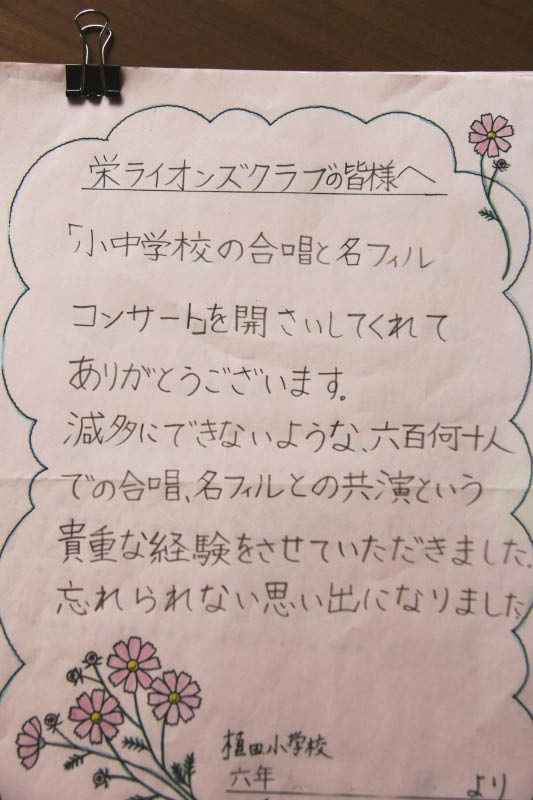 栄ライオンズクラブの皆様へ
「小中学校の合唱と名フィル
コンサート」を開さいしてくれて
ありがとうございます。
減多にできないような、六百何十人
での合唱、名フィルとの共演という
貴重な経験をさせていただきました。
忘れられない思い出になりました。
植田小学校
六年
より